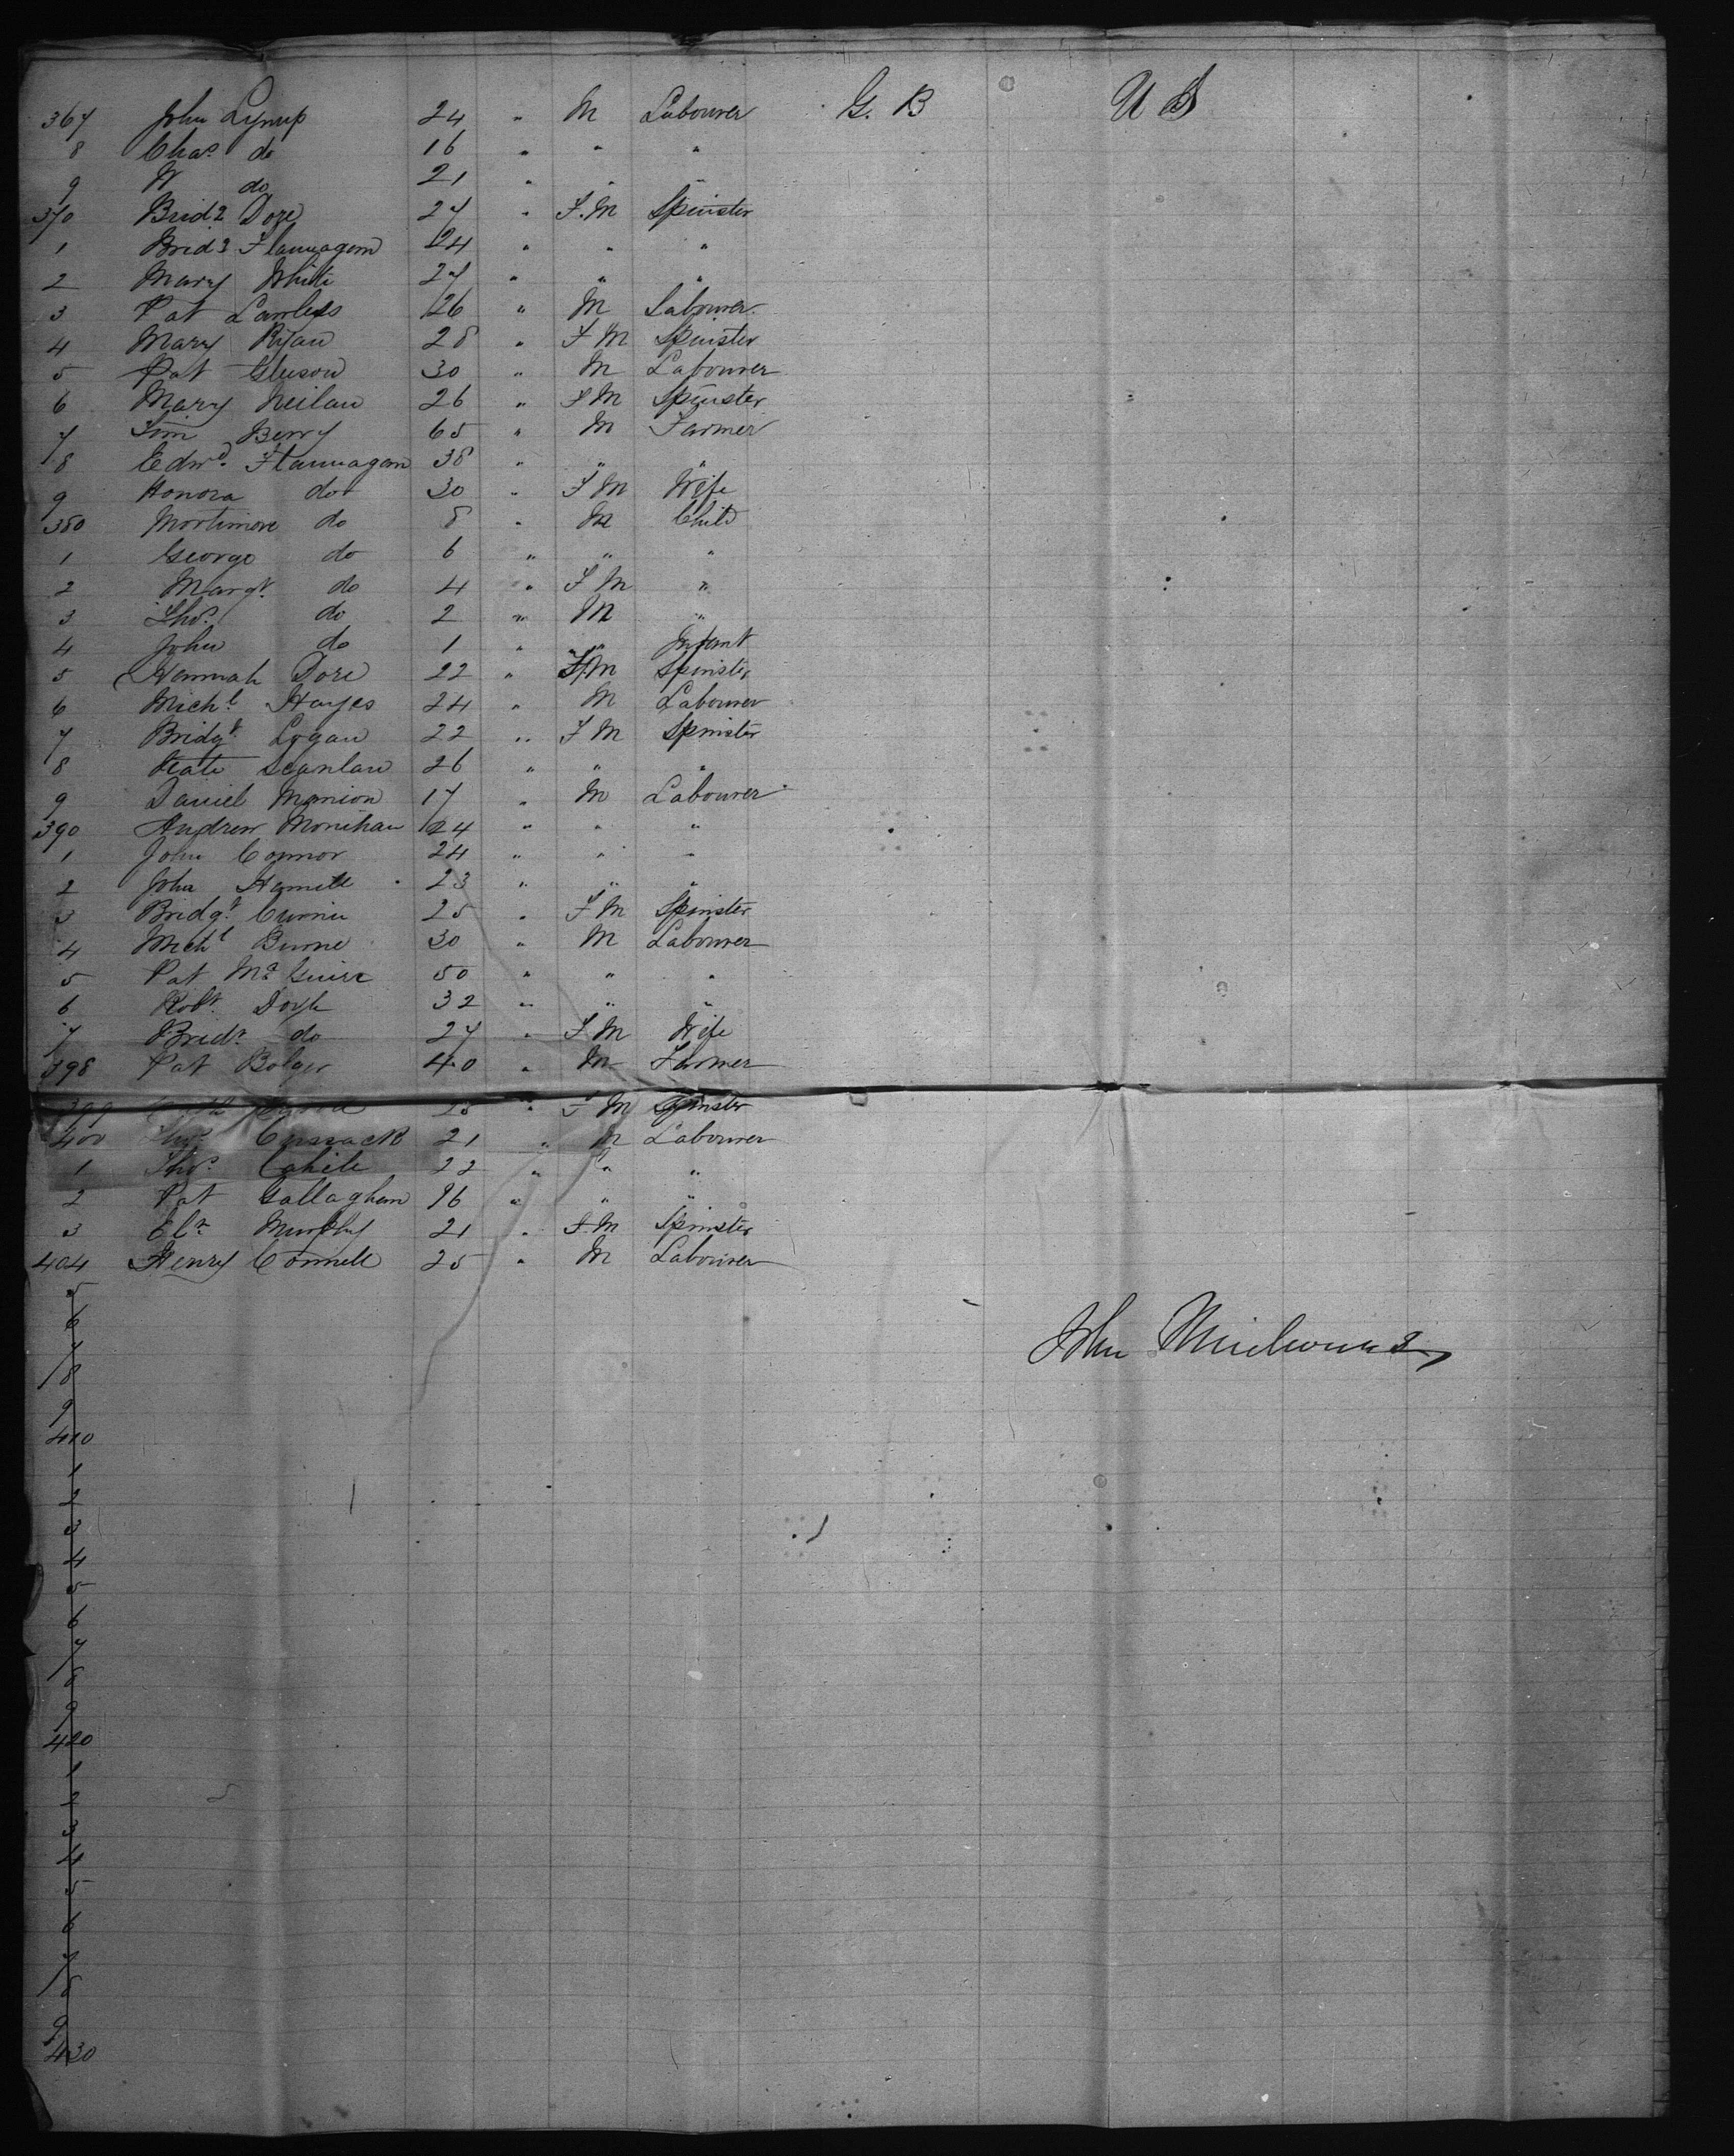 367 John Lynup 24 " M Labourer G. B U S
8 Chas do 16 " " "
9 W do 21 " " "
370 Bridt Dore 27 " F.M Spinster
1 Bridt Flannagan 24 " " "
2 Mary White 27 " " "
3 Pat Lawless 26 " M Labourer
4 Mary Ryan 28 " F M Spinster
5 Pat Gleeson 30 " M Labourer
6 Mary Neilan 26 " F M Spinster
7 Tim Berry 65 " M Farmer
8 Edwd. Flannagan 38 " " "
9 Honora do 30 " F M Wife
380 Mortimore do 8 " M Child
1 George do 6 " " "
2 Margt. do 4 " F M "
3 Thos. do 2 " M "
4 John do 1 " " Infant
5 Hannah Dore 22 " F.M Spinster
6 Michl Hayes 24 " M Labourer
7 Bridgt. Logan 22 " F M Spinster
8 Kate Scanlan 26 " " "
9 Daniel Manion 17 " M Labourer
390 Andrew Monihan 24 " " "
1 John Connor 24 " " "
2 John Hamill 23 " " "
3 Bridgt. 25 " F M Spinster
4 Michl Burne 30 " M Labourer
5 Pat Mc Guire 50 " " "
6 Robt. Doyle 32 " " "
7 Bridt do 27 " F M Wife
398 Pat Bolger 40 " M Farmer
399 " F M Spinster
400 Thos Cussack 21 " M Labourer
1 Thos. Cahill 22 " " "
2 Pat Gallaghan " " "
3 Elz Murphy 21 " F.M Spinster
404 Henry Connell 25 " M Labourer
5
6
John
7
8
9
410
1
2
3
4
5
6
7
8
9
420
1
2
3
4
5
6
7
8
9
430